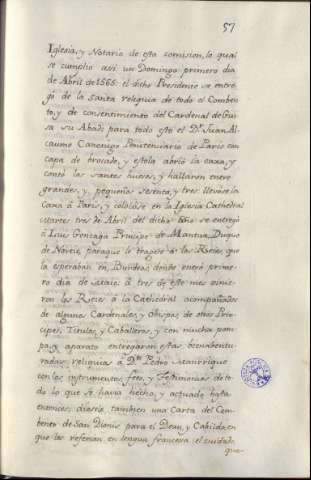 57
Iglesia, y Notario de esta comision, lo qual
se cumplio assi un Domingo primero dia
de Abril de 1565: el dicho Presidente se entre
gó de la Santa reliquia de todo el Comben
to, y de consentimiento del Cardenal de Gui
sa su Abad; para todo esto el Dr. Juan Al
eaume Canonigo Penitenciario de Paris con
capa de brocado, y estola abrió la caxa, y
contó los santos huesos, y hallaron entre
grandes, y pequeños sesenta, y tres llevóse la
Caxa á Paris, y colóse en la Iglesia Cathedral
Martes tres de Abril del dicho año se entregó
á Luis Gonzaga Principe de Mantua, Duque
de Nivers, paraque lo tragese á los Reies, que
la esperaban en Burdeos, donde entró prime
ro dia de Maio: á tres de este mes vinie
ron los Reies á la Cathedral acompañados
de algunos Cardenales, y Obispos de otros Prin
cipes, Titulos, y Caballeros, y con mucha pom
pa, y aparato entregaron estas bienabentu
radas reliquias á Dn. Pedro Manrrique
con los instrumentos, fees, y Testimonios de to
do lo que se havia hecho, y actuado hasta
entonces: dieróle tambien una Carta del Com
bento de San Dionis para el Dean, y Cabildo, en
que les referian en lengua francesa el cuidado,
que=